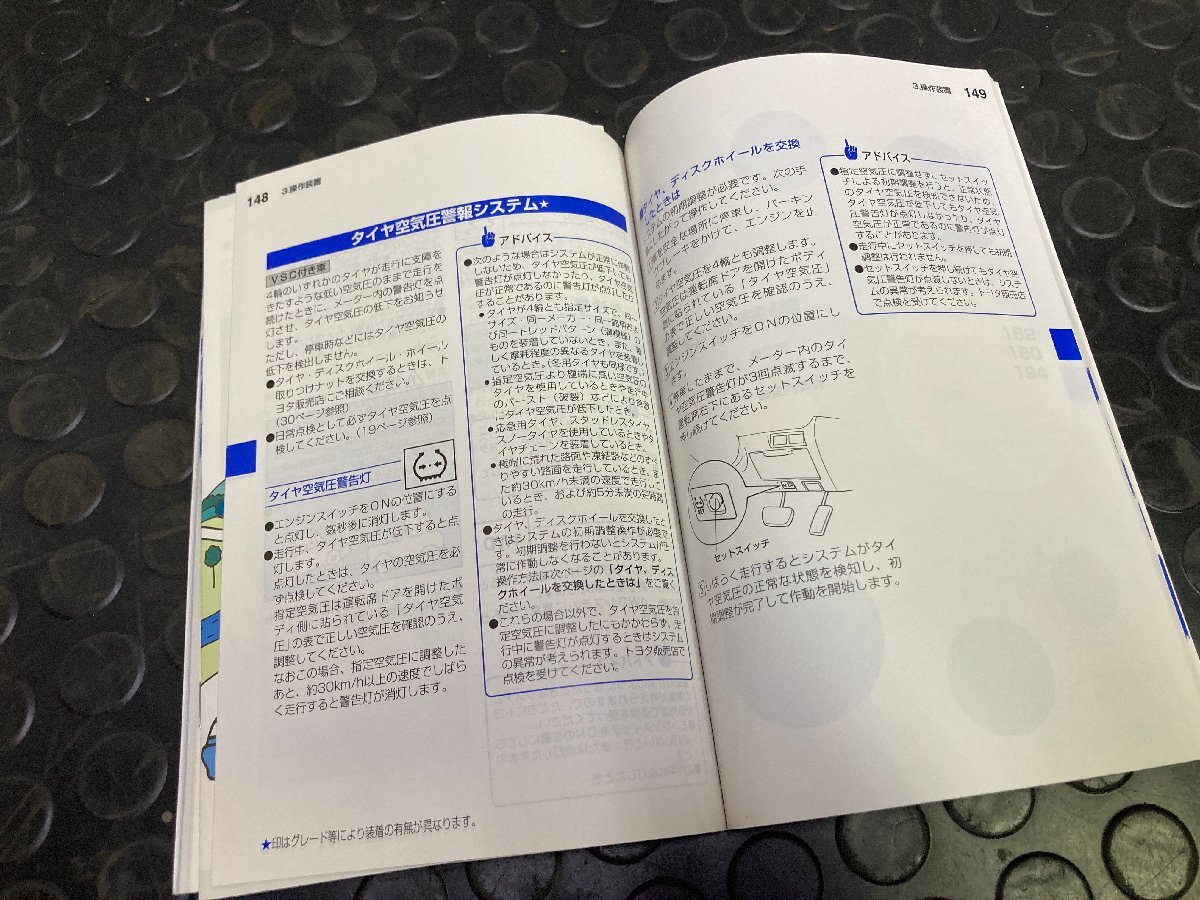 148
3.操作装置
タイヤ空気圧警報システム★
VSC付き車
4輪のいずれかのタイヤが走行に支障を
きたすような低い空気圧のままで走行を
続けたときに、メーター内の警告灯を点
灯させ、タイヤ空気圧の低下をお知らせ
します。
ただし、停車時などにはタイヤ空気圧の
低下を検出しません。
●タイヤ・ディスクホイール・ホイール
取りつけナットを交換するときは、ト
ヨタ販売店にご相談ください。
(30ページ参照)
●日常点検として必ずタイヤ空気圧を点
検してください。(19ページ参照)
タイヤ空気圧警告灯
●エンジンスイッチをONの位置にする
と点灯し、数秒後に消灯します。
●走行中、タイヤ空気圧が低下すると点
灯します。
点灯したときは、タイヤの空気圧を必
ず点検してください。
指定空気圧は運転席ドアを開けたボ
ディ側に貼られている「タイヤ空気
圧」の表で正しい空気圧を確認のうえ、
調整してください。
なおこの場合、指定空気圧に調整した
あと、約30km/h以上の速度でしばら
く走行すると警告灯が消灯します。
アドバイス
●次のような場合はシステムが正常に作動
しないため、タイヤ空気圧が低下しても
警告灯が点灯しなかったり、タイヤ空気
圧が正常であるのに警告灯が点灯したり
することがあります。
●タイヤが4輪とも指定サイズで、同一
サイズ・同一メーカー・同一銘柄およ
び同一トレッドパターン(溝模様)の
ものを装着していないとき、また、著
しく摩耗程度の異なるタイヤを装着し
ているとき。(冬用タイヤも同様です。)
●指定空気圧より極端に高い空気圧の
タイヤを使用しているときや走行中
のバースト(破裂)などにより急激
にタイヤ空気圧が低下したとき。
●応急用タイヤ、スタッドレスタイヤ、
スノータイヤを使用しているときやタ
イヤチェーンを装着しているとき。
●極端に荒れた路面や凍結路などのすべ
りやすい路面を走行しているとき、ま
た約30km/h未満の速度で走行して
いるとき、および約5分未満の短時間
の走行。
●タイヤ、ディスクホイールを交換したと
きはシステムの初期調整操作が必要で
す。初期調整を行わないとシステムが正
常に作動しなくなることがあります。
操作方法は次ページの「タイヤ、ディス
クホイールを交換したときは」をご覧く
ださい。
●これらの場合以外で、タイヤ空気圧を指
定空気圧に調整したにもかかわらず、走
行中に警告灯が点灯するときはシステム
の異常が考えられます。トヨタ販売店で
点検を受けてください。
★印はグレード等により装着の有無が異なります。
3.操作装置
149
タイヤ、ディスクホイールを交換
したときは
の初期調整が必要です。次の手
したがって操作してください。
安全な場所に停車し、パーキン
ブレーキをかけて、エンジンを止
ます。
空気圧を4輪とも調整します。
気圧は運転席ドアを開けたボディ
側に貼られている「タイヤ空気圧」
表で正しい空気圧を確認のうえ、
調整してください。
エンジンスイッチをONの位置にし
ます。
したままで、メーター内のタイ
ヤ空気圧警告灯が3回点滅するまで、
運転席右下にあるセットスイッチを
押し続けてください。
セットスイッチ
しばらく走行するとシステムがタイ
ヤ空気圧の正常な状態を検知し、初
期調整が完了して作動を開始します。
アドバイス
●指定空気圧に調整せずに、セットスイッ
チによる初期調整を行うと、正常状態
のタイヤ空気圧を検知できないため、
タイヤ空気圧が低下してもタイヤ空気
圧警告灯が点灯しなかったり、タイヤ
空気圧が正常であるのに警告灯が点灯
することがあります。
●走行中にセットスイッチを押しても初期
調整は行われません。
●セットスイッチを押し続けてもタイヤ空
気圧警告灯が点滅しないときは、システ
ムの異常が考えられます。トヨタ販売店
で点検を受けてください。